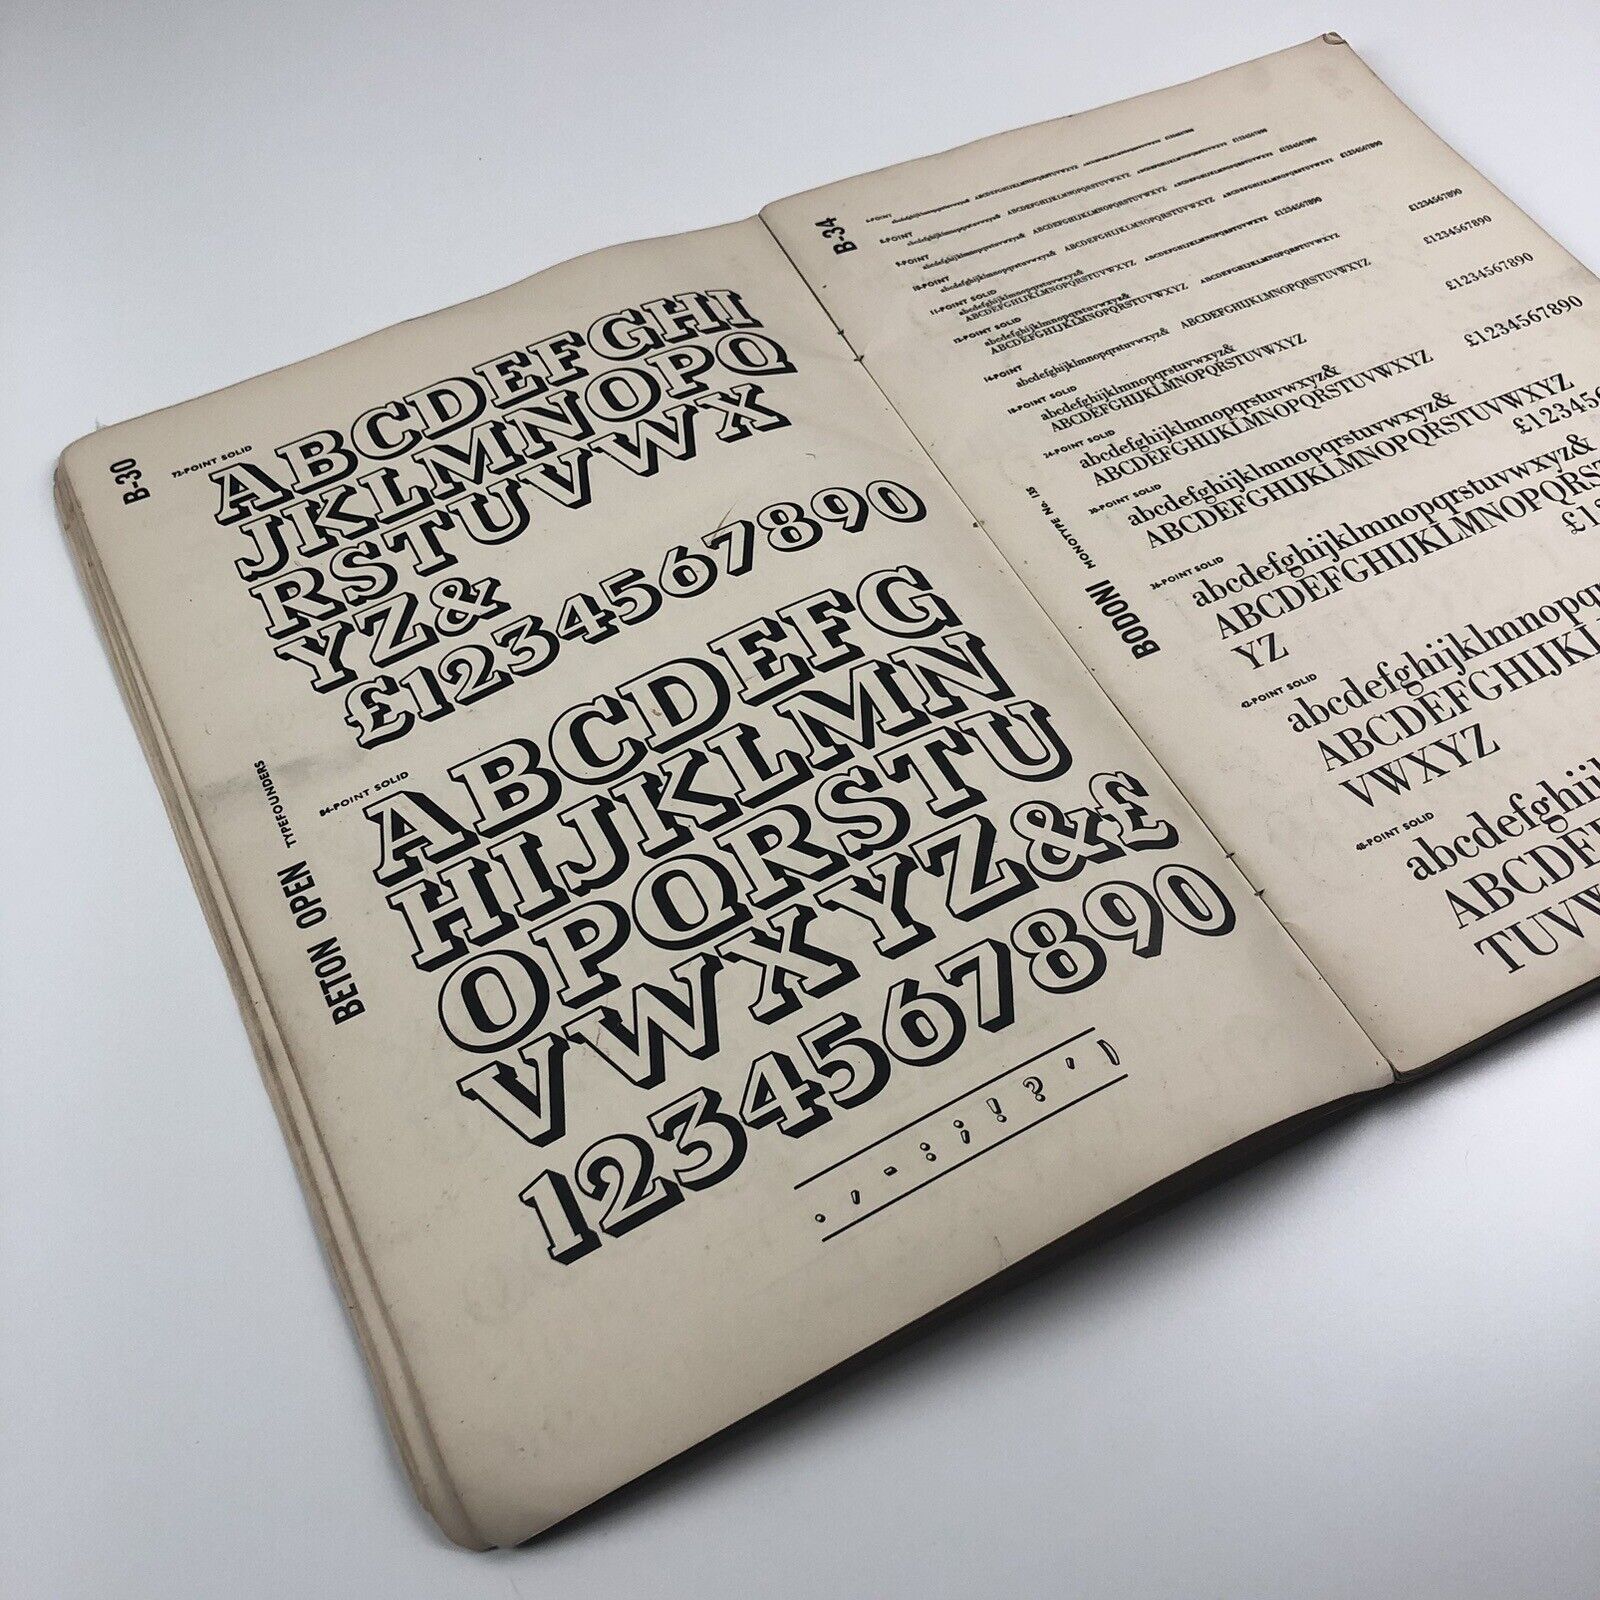 B-30
72-POINT SOLID
ABCDEFGHI
JKLMNOPQ
RSTUVWX
YZ&
£1234567890
BETON OPEN TYPEFOUNDERS
84-POINT SOLID
ABCDEFG
HIJKLMN
OPQRSTU
VWXYZ&£
1234567890
. , - : ; ! ? ' )
B-34
6-POINT
8-POINT
abcdefghijklmnopqrstuvwxyz& ABCDEFGHIJKLMNOPQRSTUVWXYZ ABCDEFGHIJKLMNOPQRSTUVWXYZ £1234567890
9-POINT
abcdefghijklmnopqrstuvwxyz& ABCDEFGHIJKLMNOPQRSTUVWXYZ ABCDEFGHIJKLMNOPQRSTUVWXYZ £1234567890
10-POINT
abcdefghijklmnopqrstuvwxyz& ABCDEFGHIJKLMNOPQRSTUVWXYZ ABCDEFGHIJKLMNOPQRSTUVWXYZ £1234567890
11-POINT SOLID
abcdefghijklmnopqrstuvwxyz&
ABCDEFGHIJKLMNOPQRSTUVWXYZ ABCDEFGHIJKLMNOPQRSTUVWXYZ £1234567890
12-POINT SOLID
abcdefghijklmnopqrstuvwxyz&
ABCDEFGHIJKLMNOPQRSTUVWXYZ ABCDEFGHIJKLMNOPQRSTUVWXYZ
14-POINT
abcdefghijklmnopqrstuvwxyz& ABCDEFGHIJKLMNOPQRSTUVWXYZ £1234567890
18-POINT SOLID
abcdefghijklmnopqrstuvwxyz&
ABCDEFGHIJKLMNOPQRSTUVWXYZ £1234567890
24-POINT SOLID
abcdefghijklmnopqrstuvwxyz&
ABCDEFGHIJKLMNOPQRSTUVWXYZ £1234567890
BODONI MONOTYPE No. 135
30-POINT SOLID
abcdefghijklmnopqrstuvwxyz&
ABCDEFGHIJKLMNOPQRSTUVWXYZ £1234567890
36-POINT SOLID
abcdefghijklmnopqrstuvwxyz& £12345
ABCDEFGHIJKLMNOPQRST
YZ £12
42-POINT SOLID
abcdefghijklmnopq
ABCDEFGHIJKL
VWXYZ
48-POINT SOLID
abcdefghijkl
ABCDEF
TUVW